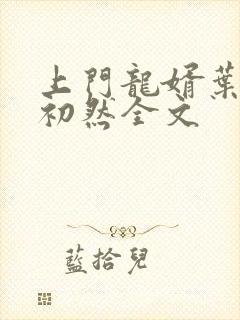 上門龍婿葉
初然全文
藍拾兒